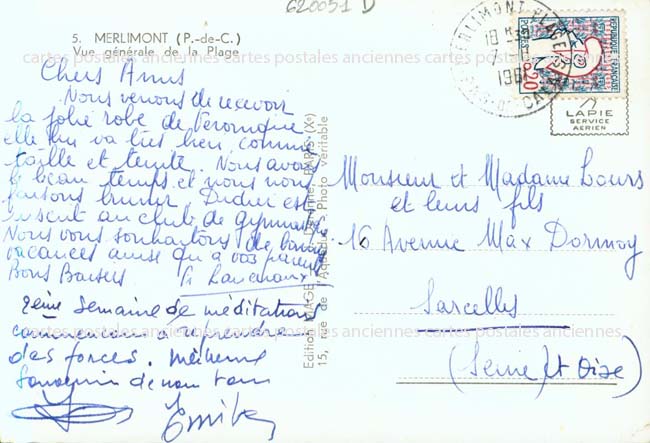 620051 D
5. MERLIMONT (P.-de-C.)
Vue générale de la Plage
cartes postales anciennes cartes postales anciennes cartes postales anciennes
Chers Amis
Nous venons de recevoir
la jolie robe de Véronique
elle lui va très bien comme
taille et teinte. Nous avons
le beau temps et nous nous
faisons brunir. Didier est
inscrit au club de gymnastique
Nous vous souhaitons de bonnes
vacances ainsi qu'à vos parents
Bons Baisers
2ème Semaine de méditations
commençons à reprendre
des forces.
Souvenir de nous tous
Edition
15, rue de
PARIS (Xe)
Photo véritable
MERLIMONT PLAGE
18H30
POSTES
0,20
REPUBLIQUE FRANÇAISE
LAPIE
SERVICE
AERIEN
Monsieur et Madame Lours
et leurs fils
16 Avenue Max Dormoy
Sarcelles
cartes postales anciennes cartes postales anciennes cartes postales anciennes
(Seine et Oise)